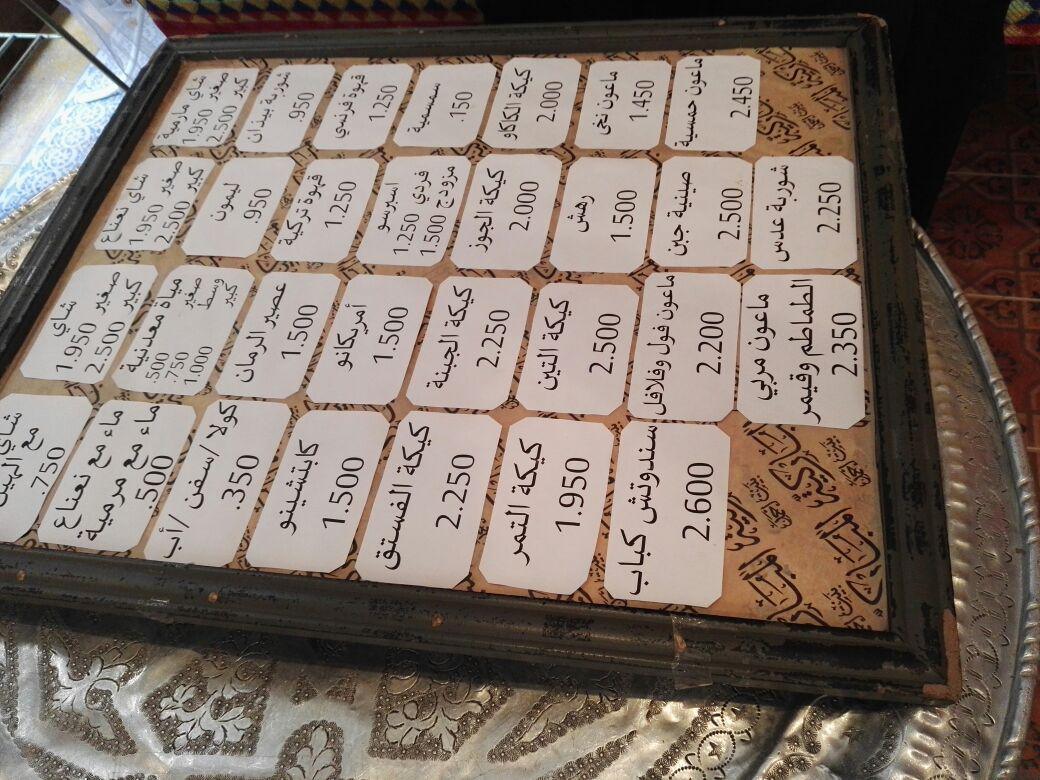 شاي مارمية
صغير 1.950
كبير 2.500
شاي نعناع
صغير 1.950
كبير 2.500
شاي
صغير 1.950
كبير 2.500
شاي
مع
.750
شوربة
.950
ليمون
.950
مياة معدنية
صغير .500
وسط .750
كبير 1.000
ماء مع نعناع
ماء مع مرمية
.500
قهوة فرنسي
1.250
قهوة تركية
1.250
عصير الرمان
1.500
كولا/سفن/أب
.350
سمسمية
.150
اسبرسو
فردي 1.250
مزوج 1.500
أمريكانو
1.500
كابتشينو
1.500
كيكة الكاكاو
2.000
كيكة الجوز
2.000
كيكة الجبنة
2.250
كيكة الفستق
2.250
ماعون نخي
1.450
رهش
1.500
كيكة التين
2.500
كيكة التمر
1.950
ماعون حمسية
2.450
صينية جبن
2.500
ماعون فول وفلافل
2.200
سندوتش كباب
2.600
شوربة عدس
2.250
ماعون مربي
الطماطم وقيمر
2.350